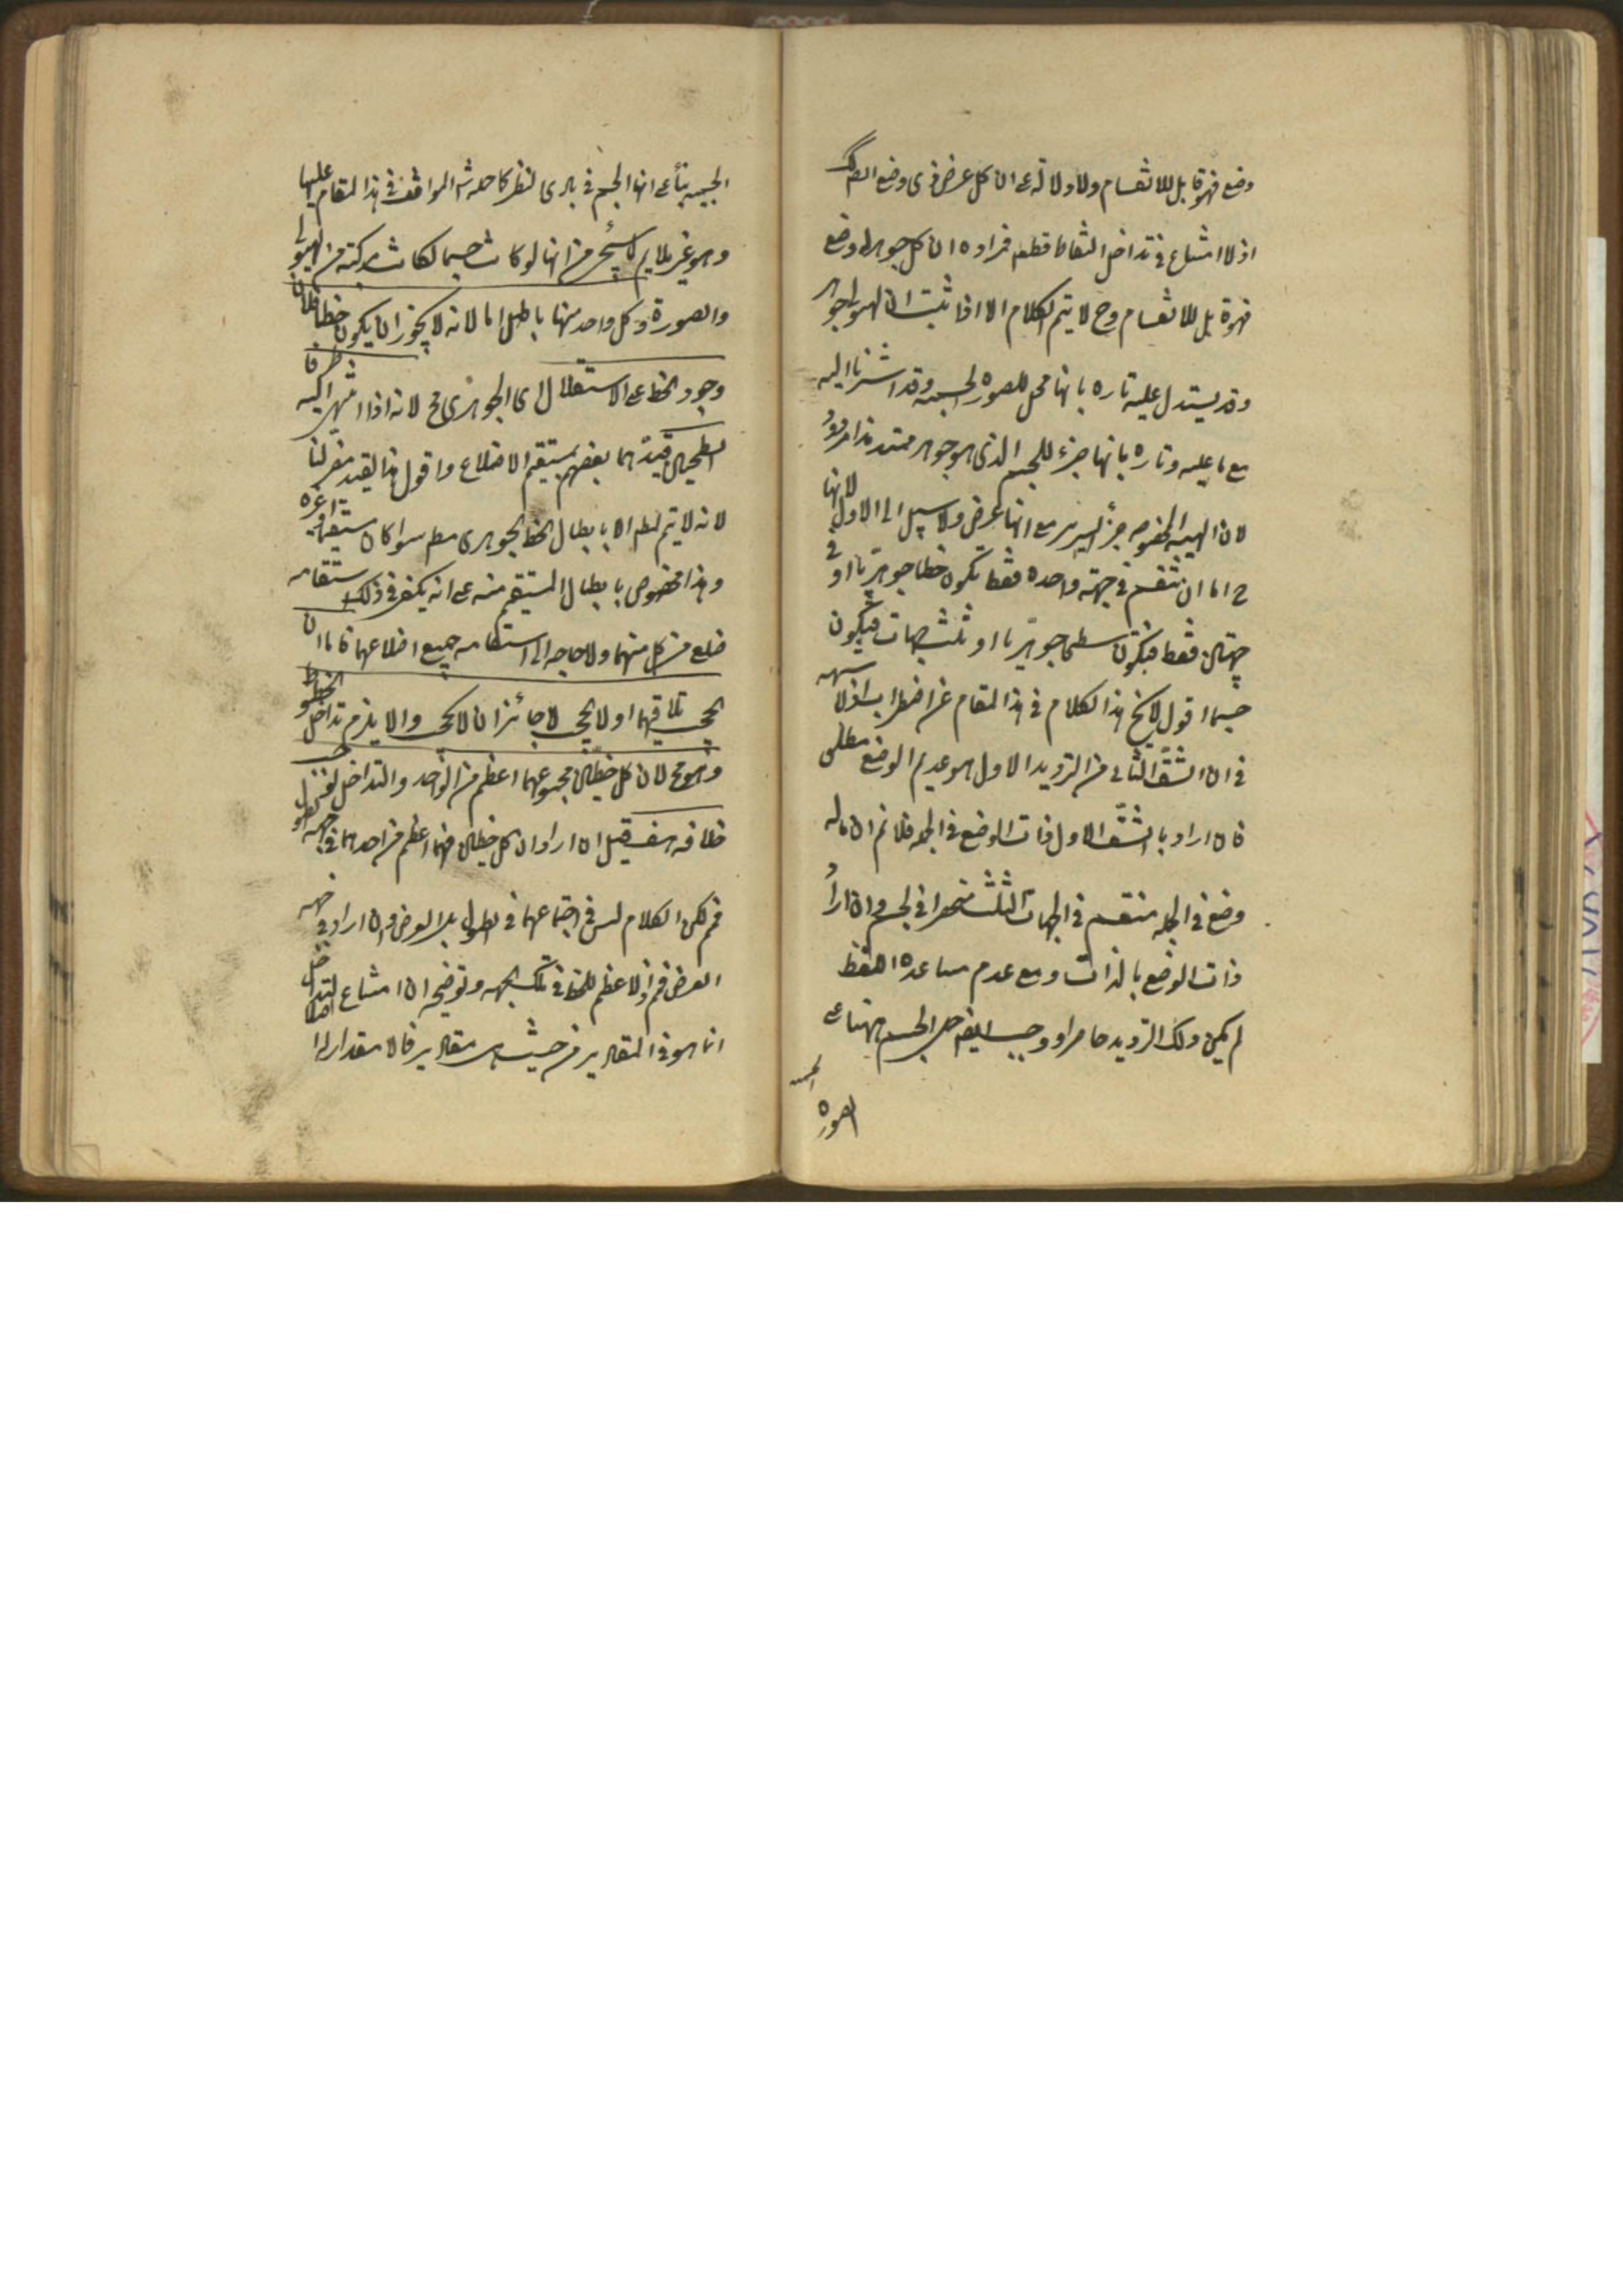 وضع فهو قابل للانقسام ولا دلالة على ان كل عرض ذى وضع
اذ لا امتناع فى تداخل النقاط قطعا فمراده ان كل جوهر له وضع
فهو قابل للانقسام وح لا يتم الكلام الا اذا ثبت ان الهيولى جوهر
وقد يستدل عليه تارة بانها محل للصورة الجسمية وقد اشرنا اليه
مع ما عليه وتارة بانها جزء للجسم الذى هو جوهر ممتد هذا مردود
لان الهيئة المخصوصة جزء السرير مع انها عرض ولا سبيل الى الاول لانها
ح اما ان تنقسم فى جهة واحدة فقط فتكون خطا جوهريا او فى
جهتين فقط فيكون سطحا جوهريا او ثلث جهات فيكون
جسما اقول لا يخ هذا الكلام فى هذا المقام عن اضطراب اذ لا شبهة
فى ان الشق الثانى من الترديد الاول هو عديم الوضع مطلقا
فان اراد بالشق الاول ذات الوضع فى الجملة فلا نم ان ماله
وضع فى الجملة منقسم فى الجهات الثلث منحصر فى الجسم وان اراد
ذات الوضع بالذات ومع عدم مساعدة اللفظ
لم يكن ذلك الترديد حاصرا ووجب ايضا حمل الجسم ههنا على
الصورة الجسمية
الجسمية بناء على انها الجسم فى بادى النظر كما حمله شه المواقف فى هذا المقام عليها
وهو غير ملايم لما سيجئ من انها لو كانت جسما لكانت مركبة من الهيولى
والصورة وكل واحد منها باطل اما لانه لا يجوز ان يكون خطا فلان
وجود الخط على الاستقلال اى الجوهرى مح لانه اذا انتهى اليه طرفا
السطحين قيدهما بعضهم بمستقيم الاضلاع واقول هذا القيد مضر لنا
لانه لا يتم المط الا بابطال الخط الجوهرى مطم سواء كان مستقيما او غيره
وهذا مخصوص بابطال المستقيم منه على انه يكفى فى ذلك استقامة
ضلع من كل منهما ولا حاجة الى استقامة جميع اضلاعهما فاما ان
يحجب تلاقيهما او لا يحجب لا جائز ان لا يحجب والا يلزم تداخل الخطوط
وهو مح لان كل خطين مجموعهما اعظم من الواحد والتداخل يوجب
خلافه هف قيل ان اراد ان كل خطين فهما اعظم من احدهما فى جهة الطول
فم لكن الكلام ليس فى اجتماعهما فى الطول بل العرض وان اراد فى جهة
العرض فم اذ لا عظم للخط فى تلك الجهة وتوضيحه ان امتناع التداخل
انما هو فى المقادير من حيث هى مقادير فما لا مقدار له اصلا